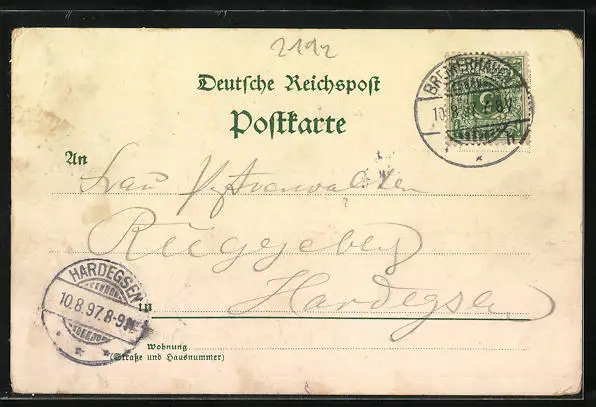 2192
Deutsche Reichspost
Postkarte
BREMERHAVEN
10.8.97.
An
Frau Postverwalter
Rüggeberg
in Hardegsen
HARDEGSEN
10.8.97.8-9N.
Wohnung
(Straße und Hausnummer)